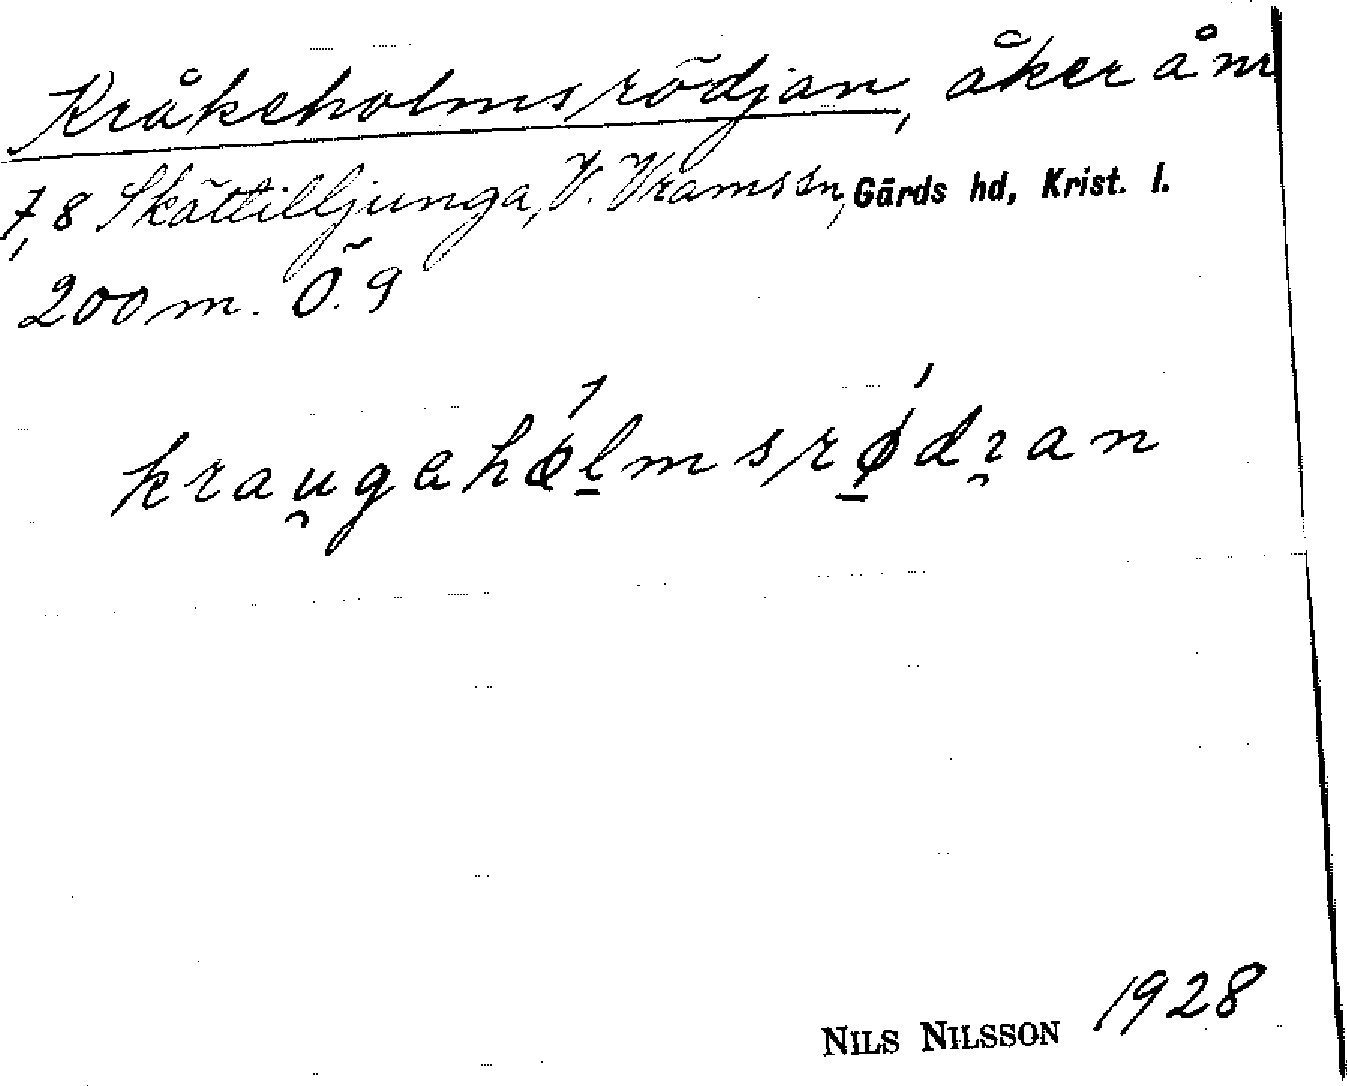 Kråkeholmsrödjan, åker å nr
7, 8 Skättilljunga, V. Vramssn, Gärds hd, Krist. l.
200 m. Ö. 9
krau̯gahø̀lmsrǿdɿan
NILS NILSSON 1928